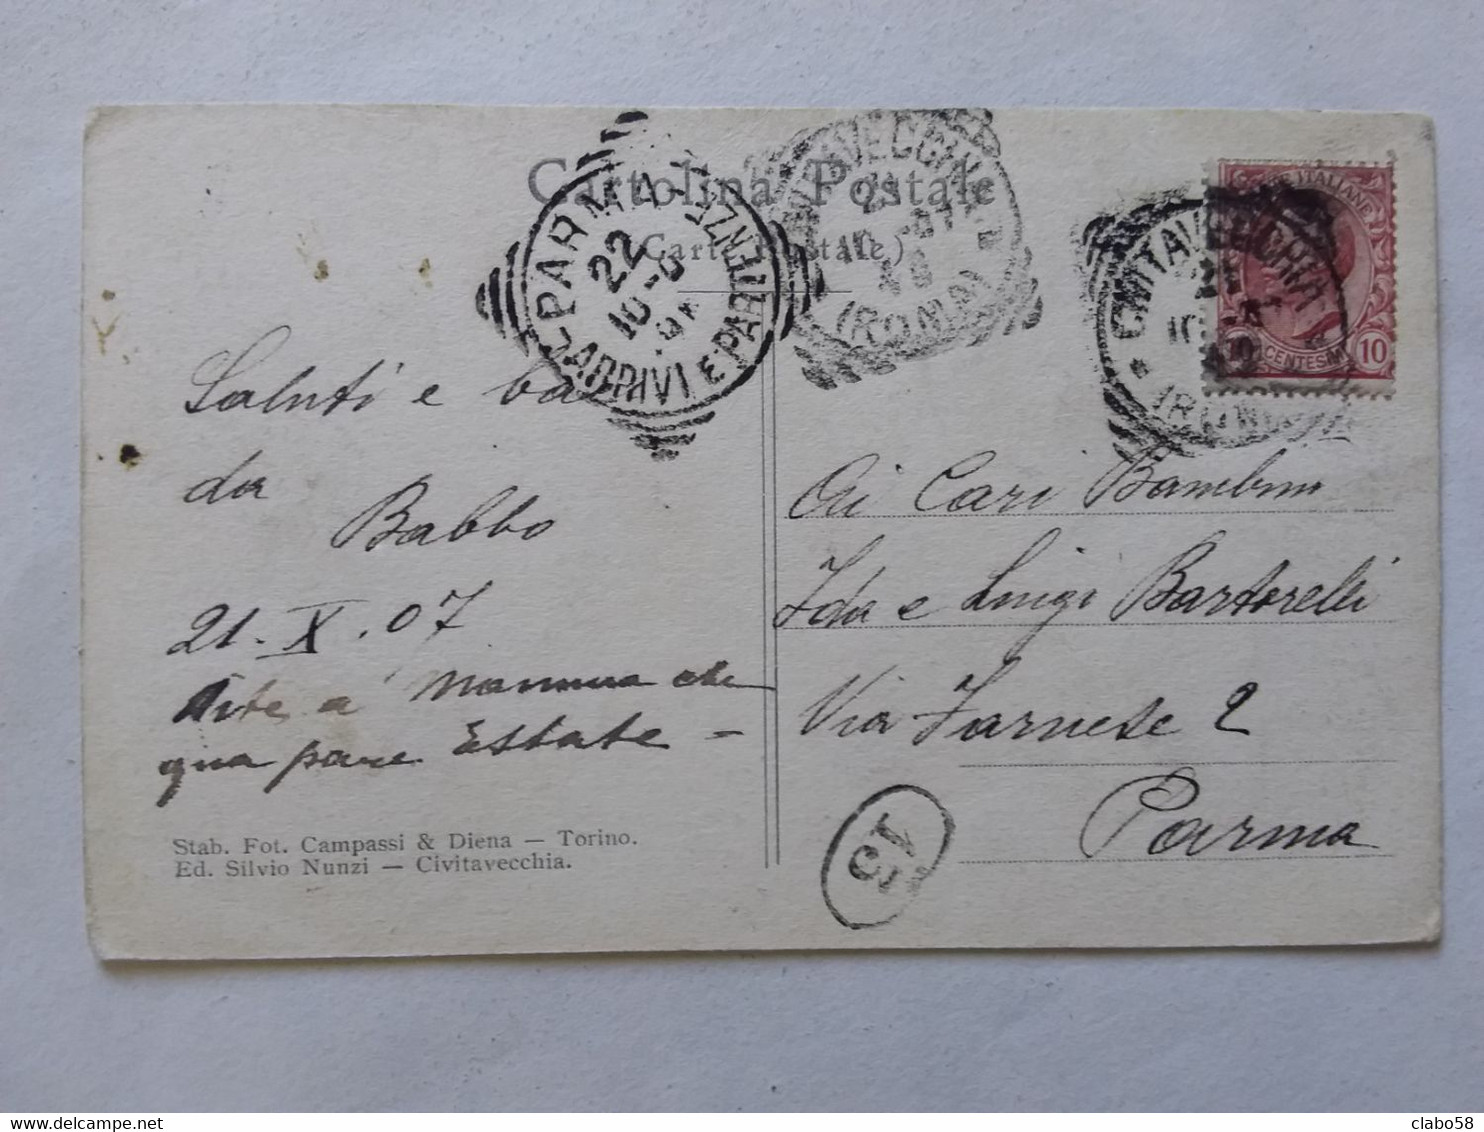 Cartolina Postale
(Carte Postale)
PARMA
22
10-0
ARRIVI E PARTENZE
CIVITAVECCHIA
21
(ROMA)
CIVITAVECCHIA
21
10
(ROMA)
POSTE ITALIANE
10
CENTESIMI
10
Saluti e ba
da
Babbo
21. X. 07
Dite a Mamma che
qua pare Estate –
Ai Cari Bambini
Ida e Luigi Bartorelli
Via Farnese 2
Parma
15
Stab. Fot. Campassi & Diena — Torino.
Ed. Silvio Nunzi — Civitavecchia.
clabo58